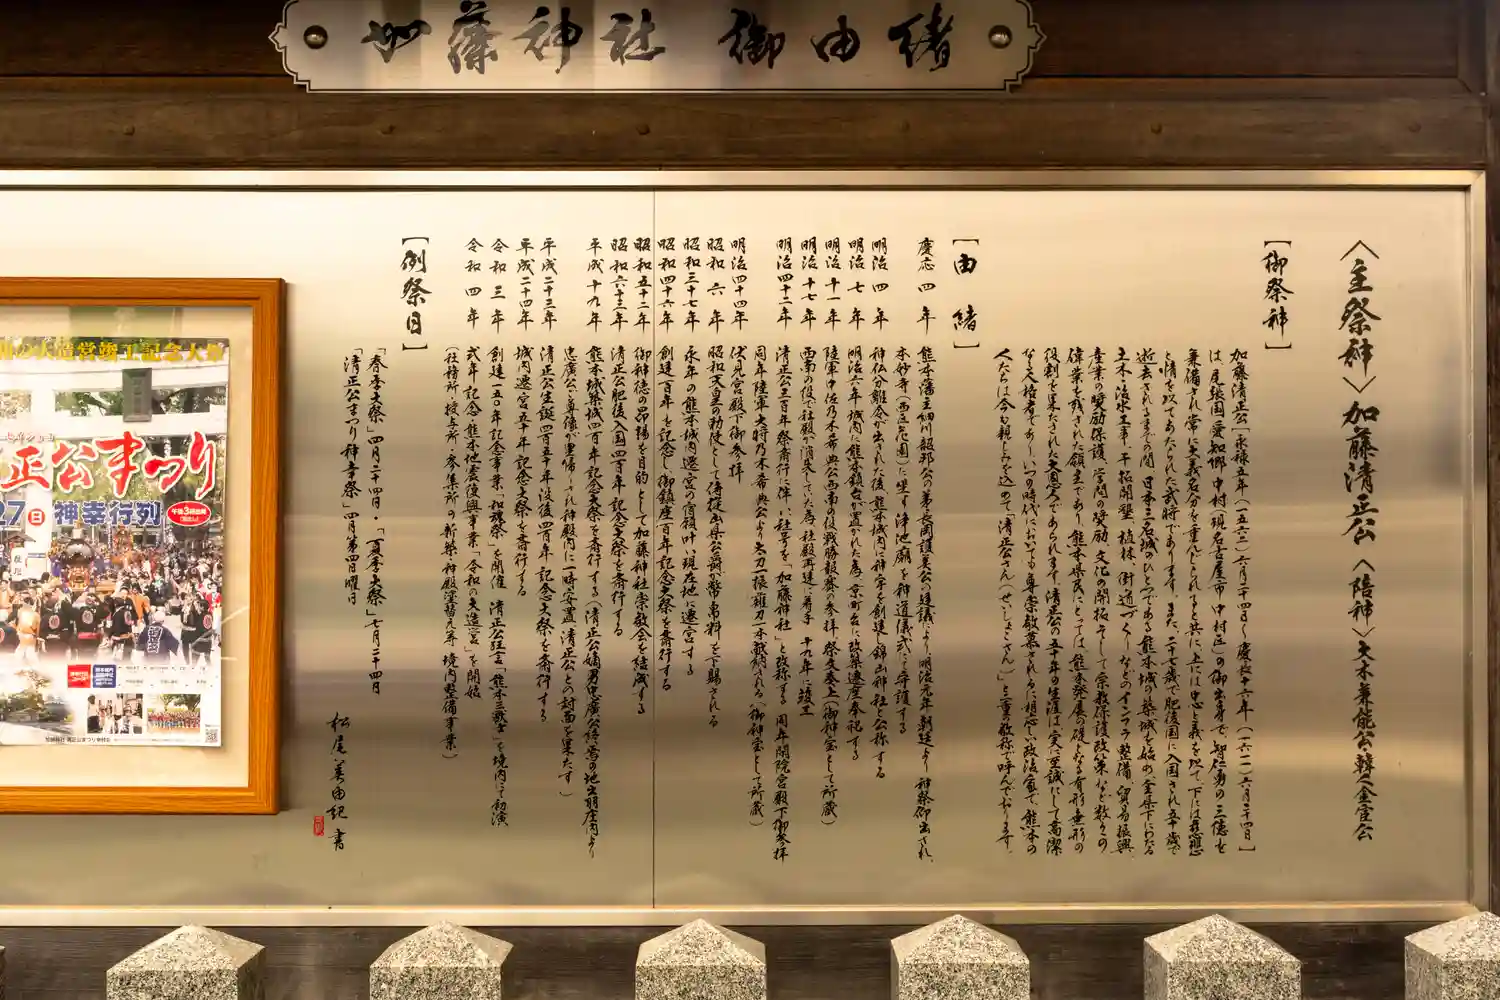 加藤神社 御由緒
〈主祭神〉加藤清正公〈陪神〉大木兼能公 韓人金宦公
【御祭神】
加藤清正公【永禄五年(一五六二)六月二十四日~慶長十六年(一六一一)六月二十四日】
は、尾張国愛知郷中村(現名古屋市中村区)の御出身で、智仁勇の三徳を
兼備され常に大義名分を重んじられると共に、上には忠と義を以て、下には慈悲
と情を以てあたられた武将であります。また、二十七歳で肥後国に入国され五十歳で
逝去されるまでの間、日本三名城のひとつである熊本城の築城を始め、全県下にわたる
土木・治水工事、干拓開墾、植林、街道づくりなどのインフラ整備、貿易振興、
産業の奨励保護、学問の奨励、文化の開拓、そして宗教保護政策など数々の
偉業を残された領主であり、熊本県民にとっては、熊本発展の礎となる有形無形の
役割を果たされた大恩人であられます。清正公の五十年の生涯は実に至誠にして高潔
な人格者であり、いつの時代においても尊崇敬慕されるに相応しい政治家で、熊本の
人たちは今も親しみを込めて「清正公さん(せいしょこさん)」と二重の敬称で呼んでおります。
【由緒】
慶応四年 熊本藩主細川韶邦公の弟・長岡護美公の建議により、明治元年朝廷より神祭仰出され、
本妙寺(西区花園)に坐す浄池廟を神道儀式で守護する
明治四年 神仏分離令が出された後、熊本城内に神宇を創建し錦山神社と公称する
明治七年 明治六年城内に熊本鎮台が置かれた為、京町台に改築遷座奉祀する
明治十一年 陸軍中佐乃木希典公西南の役戦勝報賽の参拝、祭文奏上(御神宝として所蔵)
明治十七年 西南の役で社殿が消失していた為、社殿再建に着手 十九年に竣工
明治四十二年 清正公三百年祭斎行に伴い、社号を「加藤神社」と改称する 同年閑院宮殿下御参拝
同年陸軍大将乃木希典公より太刀一振薙刀一本献納される(御神宝として所蔵)
明治四十四年 伏見宮殿下御参拝
昭和六年 昭和天皇の勅使として侍従出県公爵が幣帛料を下賜される
昭和三十七年 永年の熊本城内還宮の宿願叶い現在地に遷宮する
昭和四十六年 創建百年を記念し、御鎮座百年記念大祭を斎行する
昭和五十二年 御神徳の昂揚を目的として加藤神社崇敬会を結成する
昭和六十三年 清正公肥後入国四百年記念大祭を斎行する
平成十九年 熊本城築城四百年記念大祭を斎行する(清正公嫡男忠廣公終焉の地出羽庄内より
忠廣公ご尊像が里帰りされ神殿内に一時安置、清正公との対面を果たす)
平成二十三年 清正公生誕四百五十年没後四百年記念大祭を斎行する
平成二十四年 城内還宮五十年記念大祭を斎行する
令和三年 創建一五〇年記念事業「和魂祭」を開催 清正公狂言「熊本三獣士」を境内にて初演
令和四年 式年記念・熊本地震復興事業「令和の大造営」を開始
(社務所・授与所・参集所の新築・神殿塗替え等、境内整備事業)
【例祭日】
「春季大祭」四月二十四日・「夏季大祭」七月二十四日
「清正公まつり神幸祭」四月第四日曜日
松尾美由紀 書
の大造営竣工記念大祭
正公まつり
27 日 神幸行列